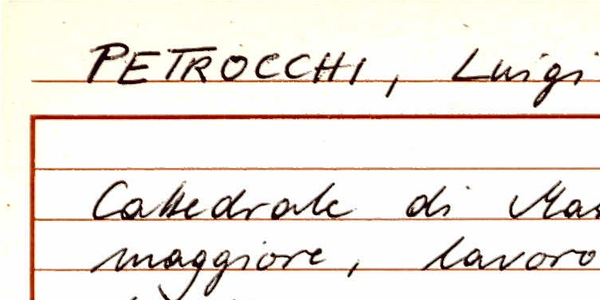 PETROCCHI, Luigi
Cattedrale di
maggiore, lavoro